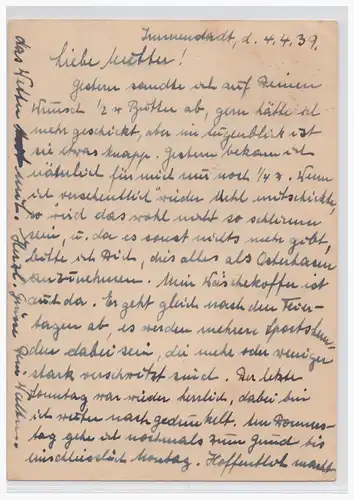 Immenstadt, d. 4.4.39.
Liebe Mutter!
Gestern sandte ich auf Deinen
Wunsch 1/2 Butter ab, gern hätte ich
mehr geschickt, aber im Augenblick ist
sie etwas knapp. Gestern bekam ich
nämlich für mich nur noch 1/4. Wenn
ich versehentlich wieder Mehl mitschickte,
so wird das wohl nicht so schlimm
sein, u. da es sonst nichts mehr gibt,
bitte ich Dich, dies alles als Osterhasen
anzunehmen. Mein Wäschekoffer ist
auch da. Er geht gleich nach den Feier-
tagen ab, es werden mehrere Sporthem-
den dabei sein, die mehr oder weniger
stark verschwitzt sind. Der letzte
Sonntag war wieder herrlich, dabei bin
ich weiter nachgedunkelt. Am Donners-
tag gehe ich nochmals zum Grund bis
einschliesslich Montag. Hoffentlich macht
das Wetter mit. Herzl. Grüsse Dein